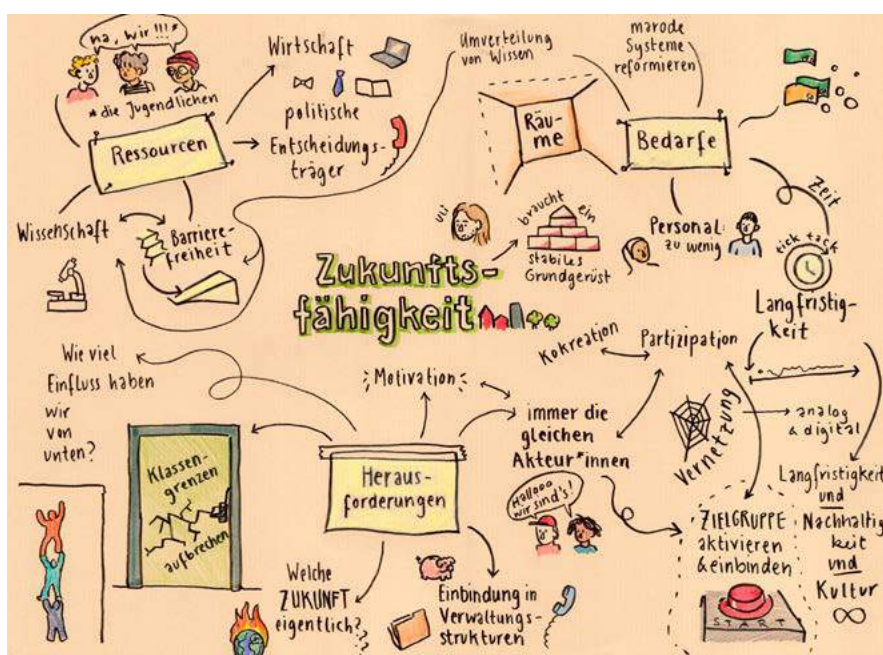 na, wir!!!*
*die Jugendlichen
Ressourcen
Wirtschaft
politische
Entscheidungs-
träger
Wissenschaft
Barriere-
freiheit
Umverteilung
von Wissen
marode
Systeme
reformieren
Räu-
me
Bedarfe
Zeit
tick tack
Personal:
zu wenig
uli
braucht ein
stabiles
Grundgerüst
Zukunfts-
fähigkeit
Langfristig-
keit
Kokreation
Partizipation
Vernetzung
analog
& digital
Langfristigkeit
und
Nachhaltig
keit
und
Kultur
Wie viel
Einfluss haben
wir
von
unten?
Motivation
immer die
gleichen
Akteur*innen
Hallooo
wir sind's!
Klassen-
grenzen
aufbrechen
Heraus-
forderungen
Welche
ZUKUNFT
eigentlich?
Einbindung in
Verwaltungs-
strukturen
ZIELGRUPPE
aktivieren
& einbinden
START